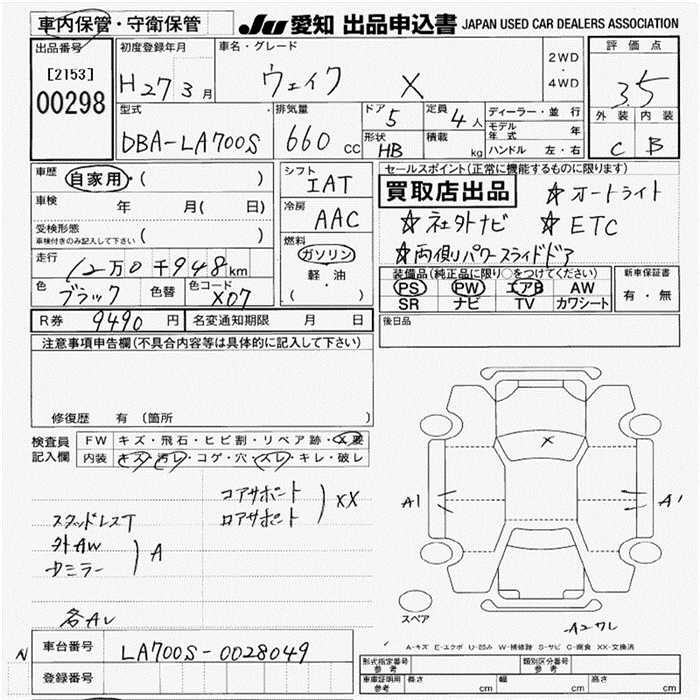 車内保管・守衛保管
JU 愛知 出品申込書 JAPAN USED CAR DEALERS ASSOCIATION
出品番号
[2153]
00298
初度登録年月
H27 3月
車名・グレード
ウェイク X
2WD
・
4WD
評価点
3.5
外装 内装
C B
型式
DBA-LA700S
排気量
660 cc
ドア 5
形状 HB
定員 4人
積載 kg
ディーラー・並行
モデル年式 年
ハンドル 左・右
車歴
自家用・( )
車検 年 月( 日)
受検形態
車検付きのみ記入して下さい ( )
走行
12万0千948km
色 ブラック 色替 色コード X07
シフト
IAT
冷房
AAC
燃料
ガソリン
軽・油
( ・ )
セールスポイント(正常に機能するものに限ります)
買取店出品
☆オートライト
☆社外ナビ ☆ETC
☆両側パワースライドドア
装備品(純正品に限り○をつけてください)
PS PW エアB AW
SR ナビ TV カワシート
新車保証書
有・無
R券 9490 円 名変通知期限 月 日
後日品
注意事項申告欄(不具合内容等は具体的に記入して下さい)
修復歴 有 (箇所 )
検査員記入欄
FW キズ・飛石・ヒビ割・リペア跡・X要
内装 キズ・汚レ・コゲ・穴・スレ・キレ・破レ
コアサポート
ロアサポート
XX
スタッドレスT
外AW
ドミラー
A
各AL
X
A1
A1
スペア
A2 ワレ
A-キズ E-エクボ U-凹み W-補修跡 S-サビ C-腐食 XX-交換済
N
車台番号 LA700S-0028049
登録番号
型式指定番号 参考
類別区分番号 参考
車庫証明用 参考 長さ cm 幅 cm 高さ cm